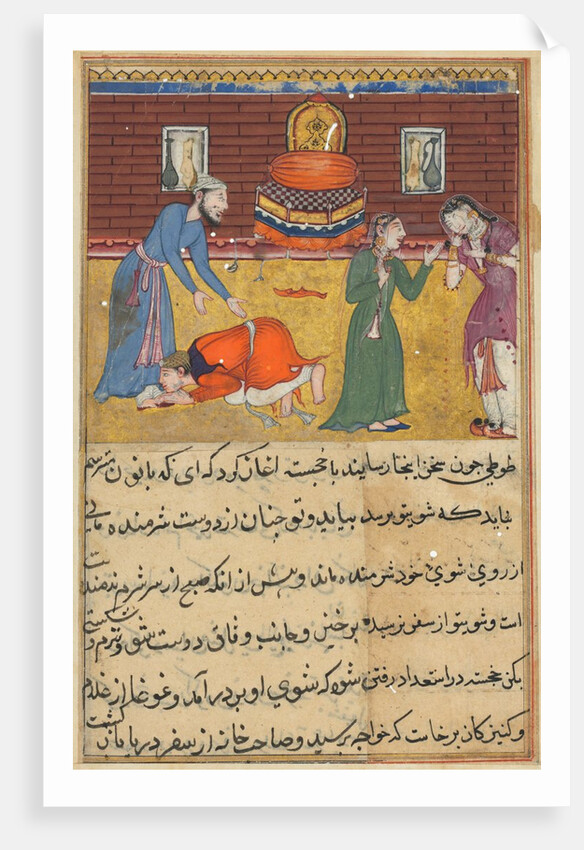 طوطی چون سخن اینجا رسانید با خجسته آغاز کرد که ای کدبانو من میترسم
نباید که شوی تو برسد بیاید و تو چنان از دوست شرمنده مانی
از روی شوی خود شرمنده ماند و پیش از انکه صبح از سر شرم
است و شوی تو از سفر نرسیده برخیز و جانب وفاق دوست شو و
بکن خجسته در استعداد رفتن شد که شوی او بر در آمد و غوغا از غلام
و کنیزکان برخاست که خواجه رسید و صاحب خانه از سفر دریا باز گشت